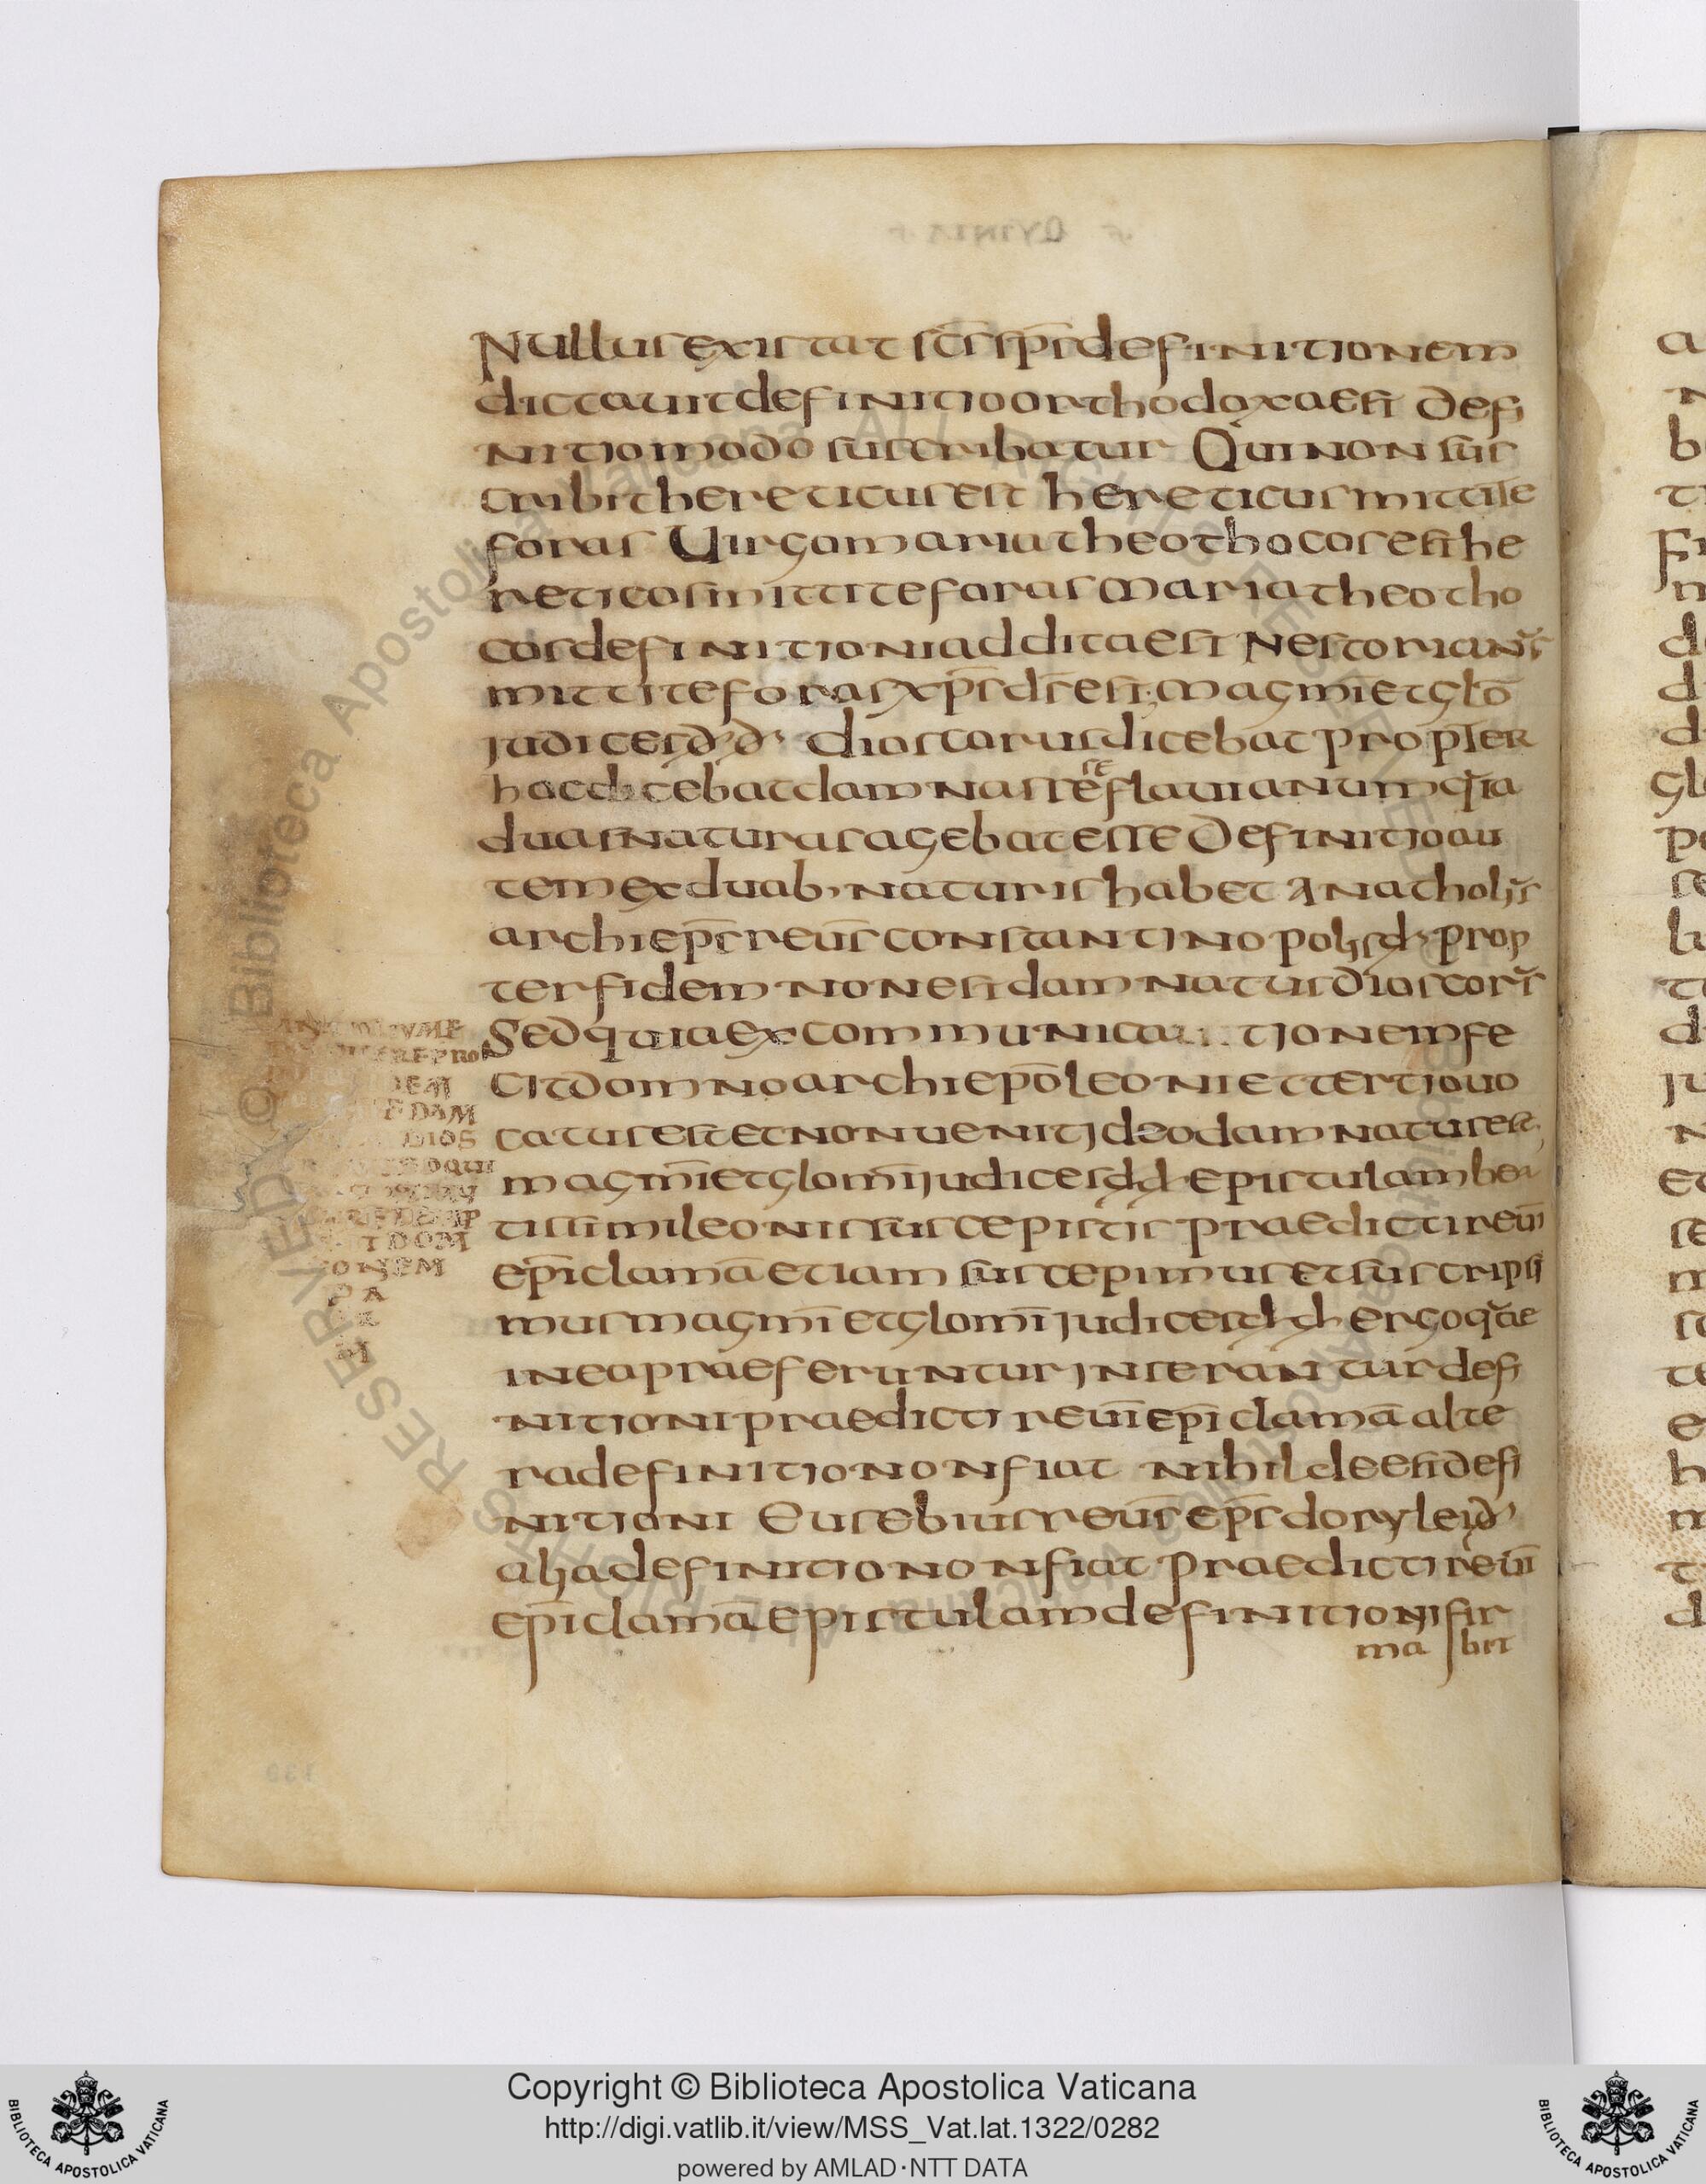 Nullus existat sc̄s sp̄s definitionem
dictavit definitio orthodoxa est Defi
nitio modo suscribatur Qui non sus
cribit hereticus est hereticus mittite
foras Uirgo maria theothocos est he
reticos mittite foras maria theotho
cos definitioni addita est Nestorianus
mittite foras xp̄s d̄s est; magmi et glo
judices dd dioscorus dicebat propter
hoc dicebat damnasse flavianum quia
duas naturas agebat esse Definitio au
tem ex duab, naturis habet Anatholis
archiep̄s reū̄s constantinopolis d, prop
ter fidem non est damnatus dioscorus
Sed quia excommunica tionem fe
cit domno archiep̄o leoni et tertio vo
catus est et non venit ideo damnatus est,
magm̄i et glom̄i judices dd epistulam bea
tissimi leonis suscepistis praedicti reūi
ep̄i clamā etiam suscepimus et suscripsi
mus magm̄i et glom̄i judices dd ergo quae
in ea praeferuntur inserantur defi
nitioni praedicti reūi ep̄i clamā alte
ra definitio non fiat nihil deest defi
nitioni Eusebius reū̄s ep̄s dorylei d,
alia definitio non fiat praedicti reūi
ep̄i clamā epistulam definitioni fir
mabit
DAM
DIOS
DOM
Copyright © Biblioteca Apostolica Vaticana
http://digi.vatlib.it/view/MSS_Vat.lat.1322/0282
powered by AMLAD·NTT DATA
BIBLIOTECA APOSTOLICA VATICANA
BIBLIOTECA APOSTOLICA VATICANA